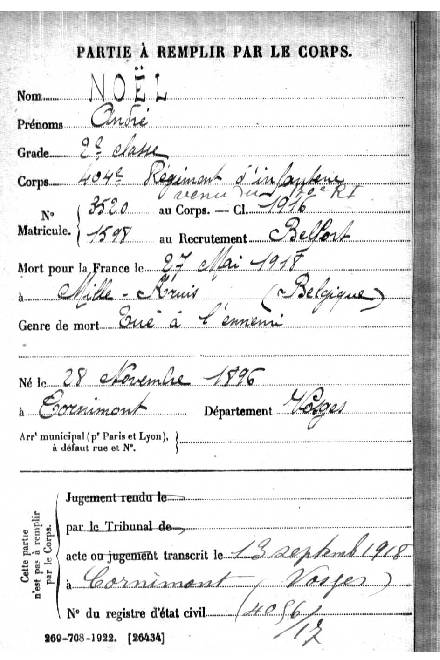 PARTIE À REMPLIR PAR LE CORPS.
Nom NOËL
Prénoms André
Grade 2e classe
Corps 404e Régiment d'infanterie
N° Matricule. { 3520 au Corps. — Cl. 1916
1598 au Recrutement Belfort
Mort pour la France le 27 Mai 1918
à Mille-Kruis (Belgique)
Genre de mort Tué à l'ennemi
Né le 28 Novembre 1896
à Cornimont Département Vosges
Arrt municipal (pr Paris et Lyon), à défaut rue et N°. }
Cette partie n'est pas à remplir par le Corps.
Jugement rendu le
par le Tribunal de
acte ou jugement transcrit le 13 septemb 1918
à Cornimont (Vosges)
N° du registre d'état civil (4056/17
269-708-1922. [26434]